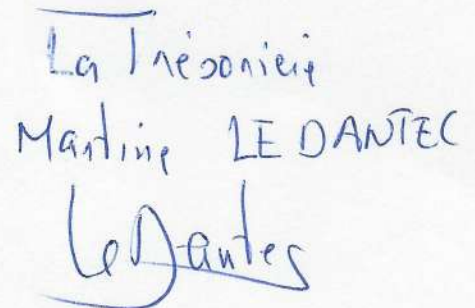 La Trésorière
Martine LE DANTEC
Le Dantec